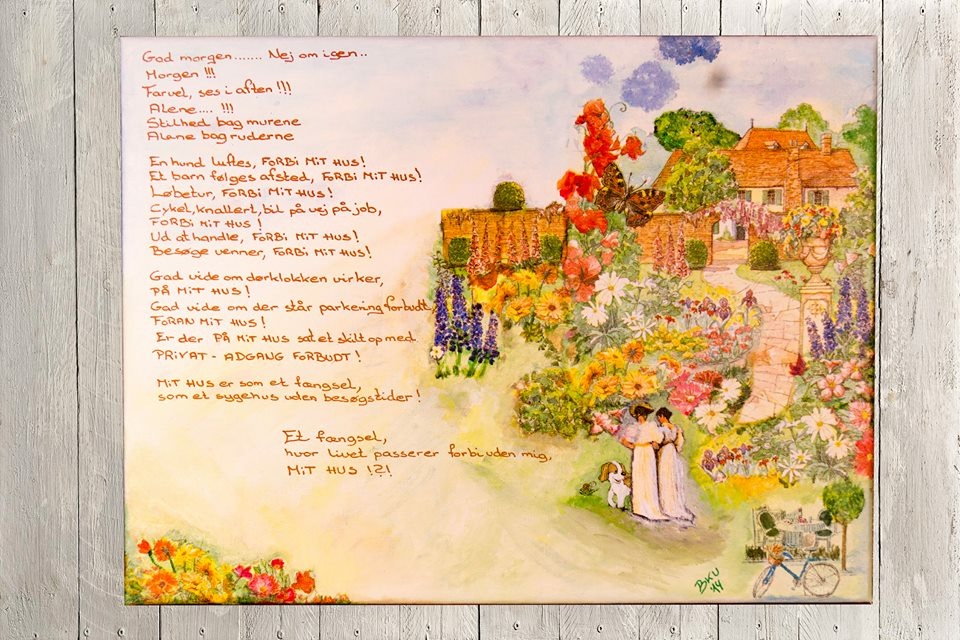 God morgen....... Nej om igen..
Morgen !!!
Farvel, ses i aften !!!
Alene.... !!!
Stilhed bag murene
Alane bag ruderne
En hund luftes, FORBi MiT HUS!
Et barn følges afsted, FORBi MiT HUS!
Løbetur, FORBi MiT HUS!
Cykel, knallert, bil på vej på job,
FORBi MiT HUS !
Ud at handle, FORBi MiT HUS!
Besøge venner, FORBi MiT HUS!
Gad vide om dørklokken virker,
PÅ MiT HUS !
Gad vide om der står parkering forbudt,
FORAN MiT HUS !
Er der PÅ MiT HUS sat et skilt op med
PRiVAT - ADGANG FORBUDT !
MiT HUS er som et fængsel,
som et sygehus uden besøgstider !
Et fængsel,
hvor livet passerer forbi uden mig,
MiT HUS !?!
BKU
'14